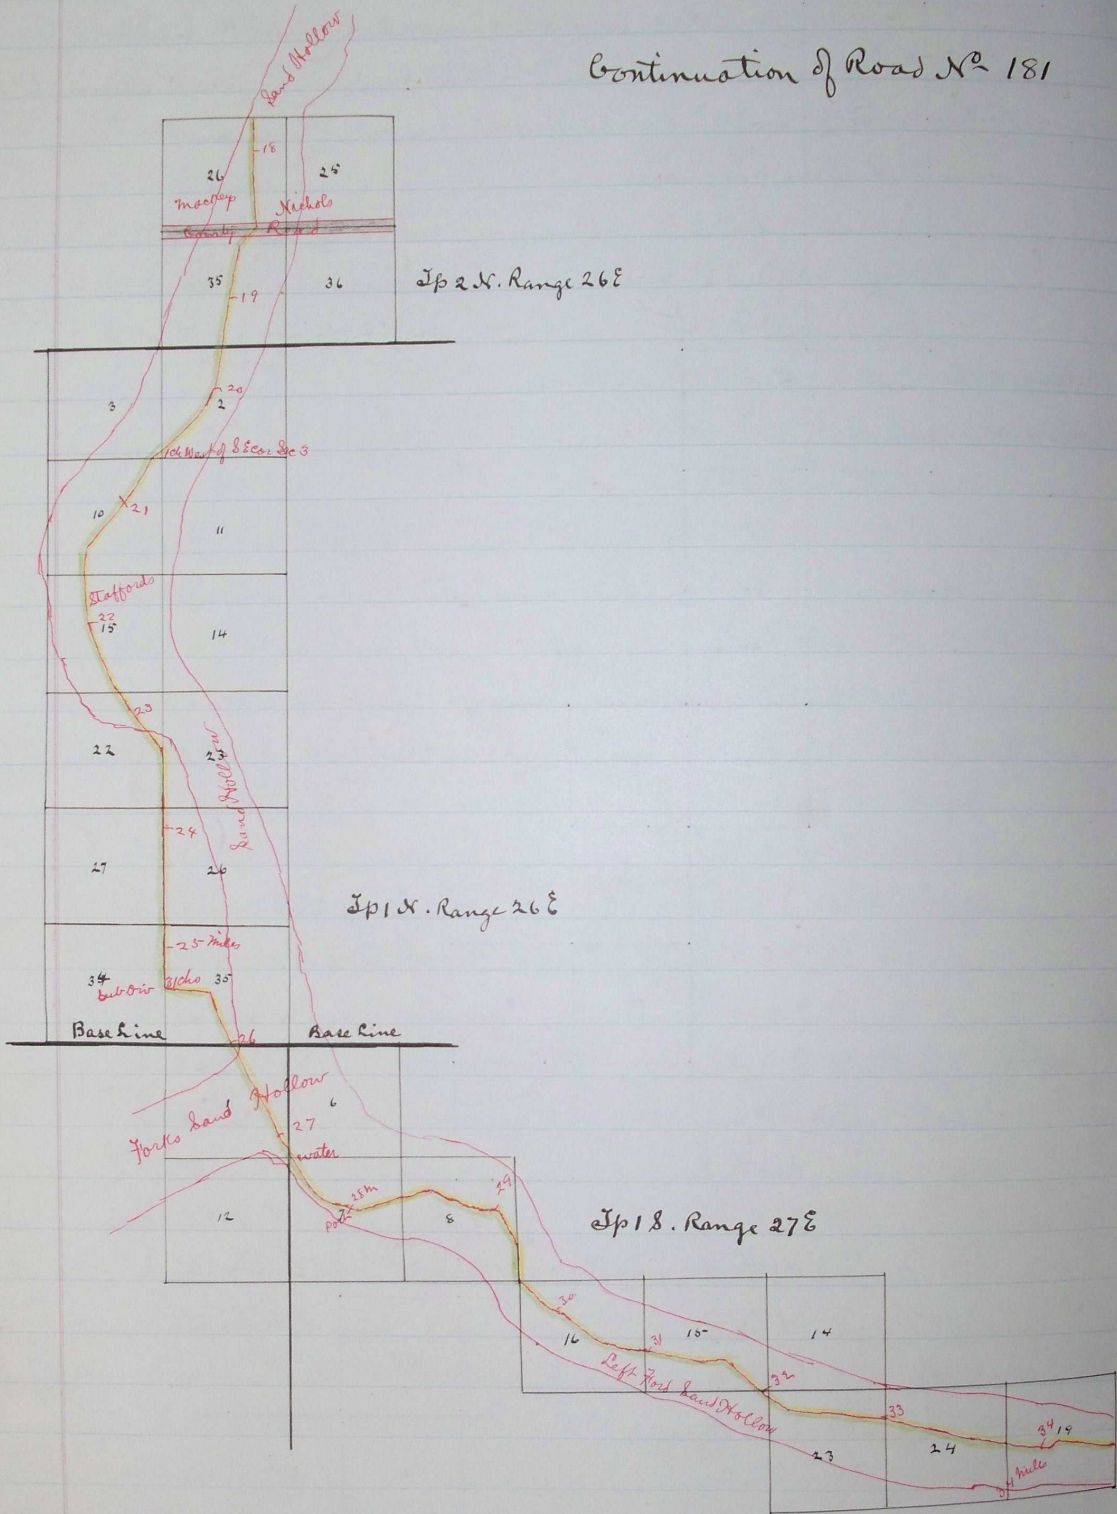 Continuation of Road No 181
Sand Hollow
18
26
25
Nichols
County Road
35
36
19
Tp 2 N. Range 26 E
20
3
2
1 ch West of S E cor Sec 3
10
21
11
Staffords
22
15
14
23
22
23
Sand Hollow
24
27
26
Tp 1 N. Range 26 E
25 Miles
34
Sub Div
31 chs
35
Base Line
Base Line
26
1
Forks Sand Hollow
6
27
water
12
7
28 m
8
29
Tp 1 S. Range 27 E
30
16
31
15
14
32
Left Fork Sand Hollow
33
23
24
34
19
34 mile